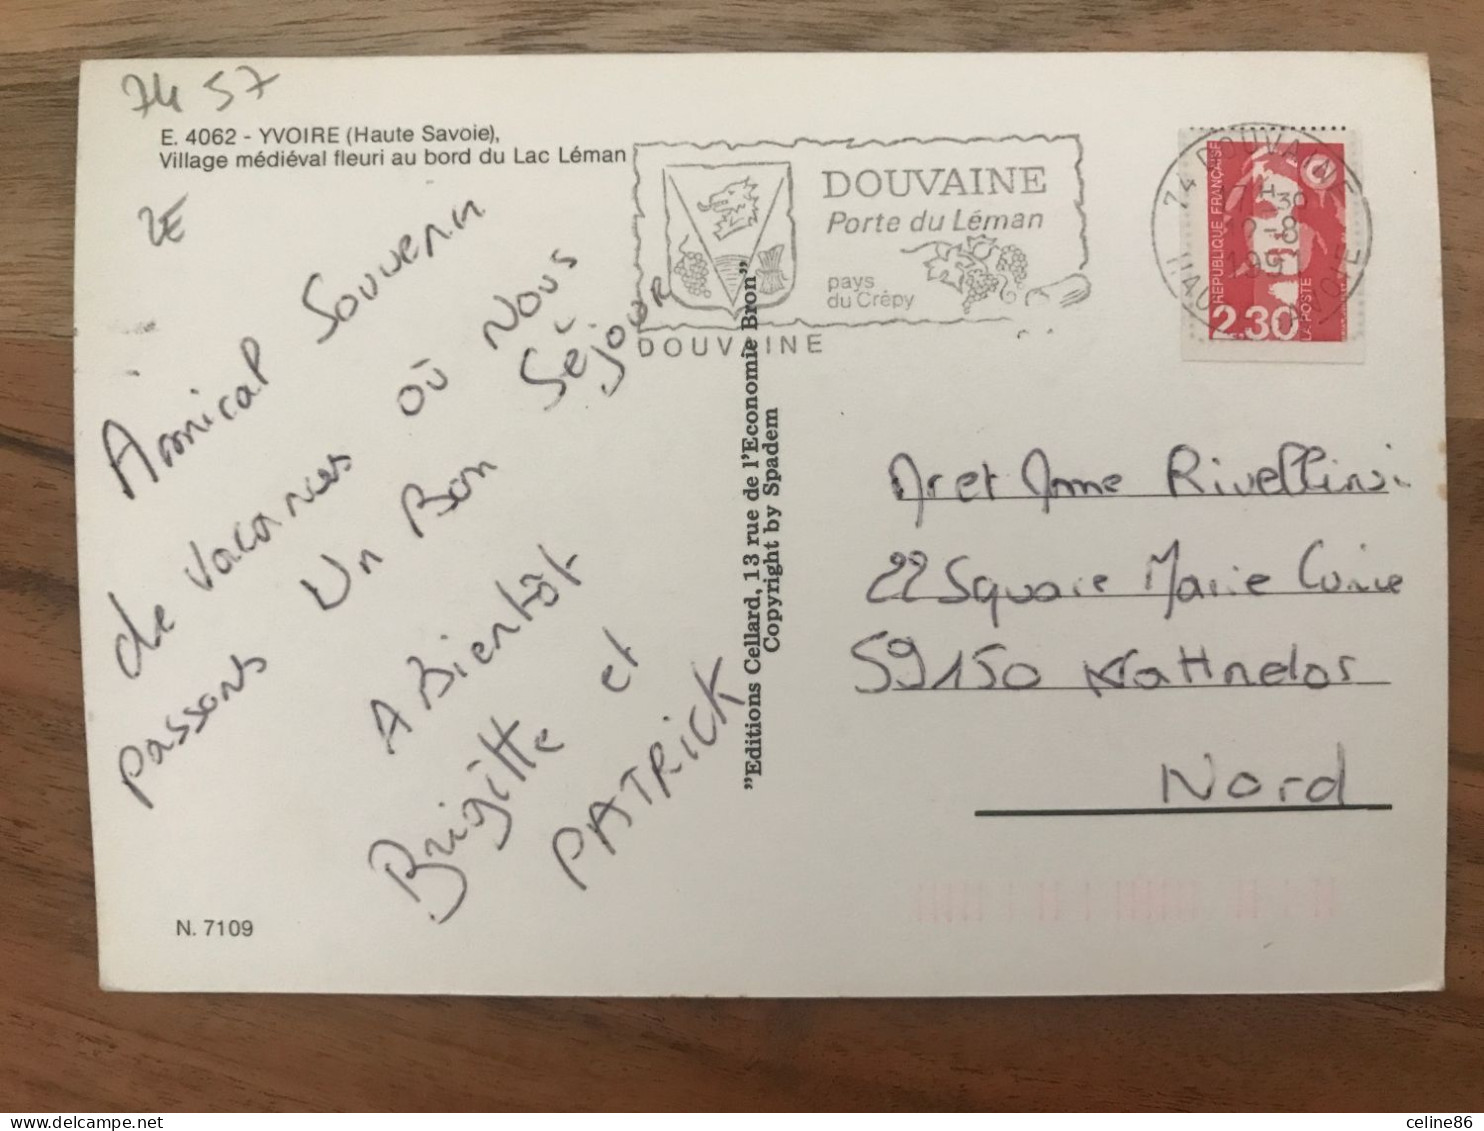 74 57
E. 4062 - YVOIRE (Haute Savoie),
Village médiéval fleuri au bord du Lac Léman
2E
Amical Souvenir
de vacances où Nous
passons Un Bon Séjour
A Bientôt
Brigitte et
PATRICK
N. 7109
"Editions Cellard, 13 rue de l'Economie Bron"
Copyright by Spadem
DOUVAINE
Porte du Léman
pays
du Crépy
DOUVAINE
74 DOUVAINE
17H30
12-8
1991
HAUTE SAVOIE
REPUBLIQUE FRANÇAISE
2.30
LA POSTE
Mr et Mme Rivellini
22 Square Marie Curie
59150 Wattrelos
Nord
celine86